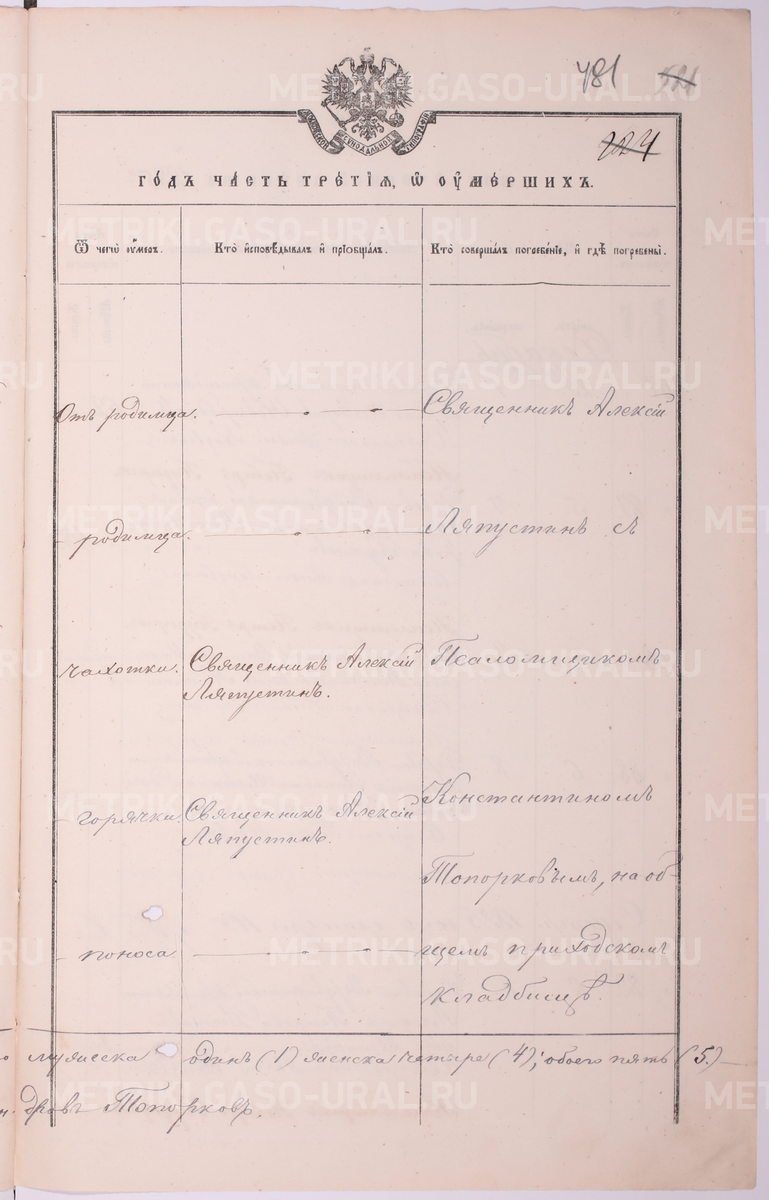 481
224
МОСКОВСКОЙ СѴНОДАЛЬНОЙ ТИПОГРАФІИ
ГО́ДЪ ЧА́СТЬ ТРЕ́ТІѦ, Ѡ ОУ҆МЕ́РШИХЪ.
Ѿ чегѡ̀ ᲂу҆́меръ.
Кто̀ и҆сповѣ́дывалъ и҆ прїѡбща́лъ.
Кто̀ соверша́лъ погребе́нїе, и҆ гдѣ̀ погребены̀.
Отъ родимца.
Священникъ Алексій
- родимца.
Ляпустинъ съ
чахотки.
Священникъ Алексій
Ляпустинъ.
Псаломщикомъ
- горячки.
Священникъ Алексій
Ляпустинъ.
Константиномъ
Топорковымъ, на об-
- поноса.
щемъ приходскомъ
кладбищѣ.
мужеска одинъ (1) женска четыре (4); обоего пять (5.)
Топорковъ.
METRIKI.GASO-URAL.RU